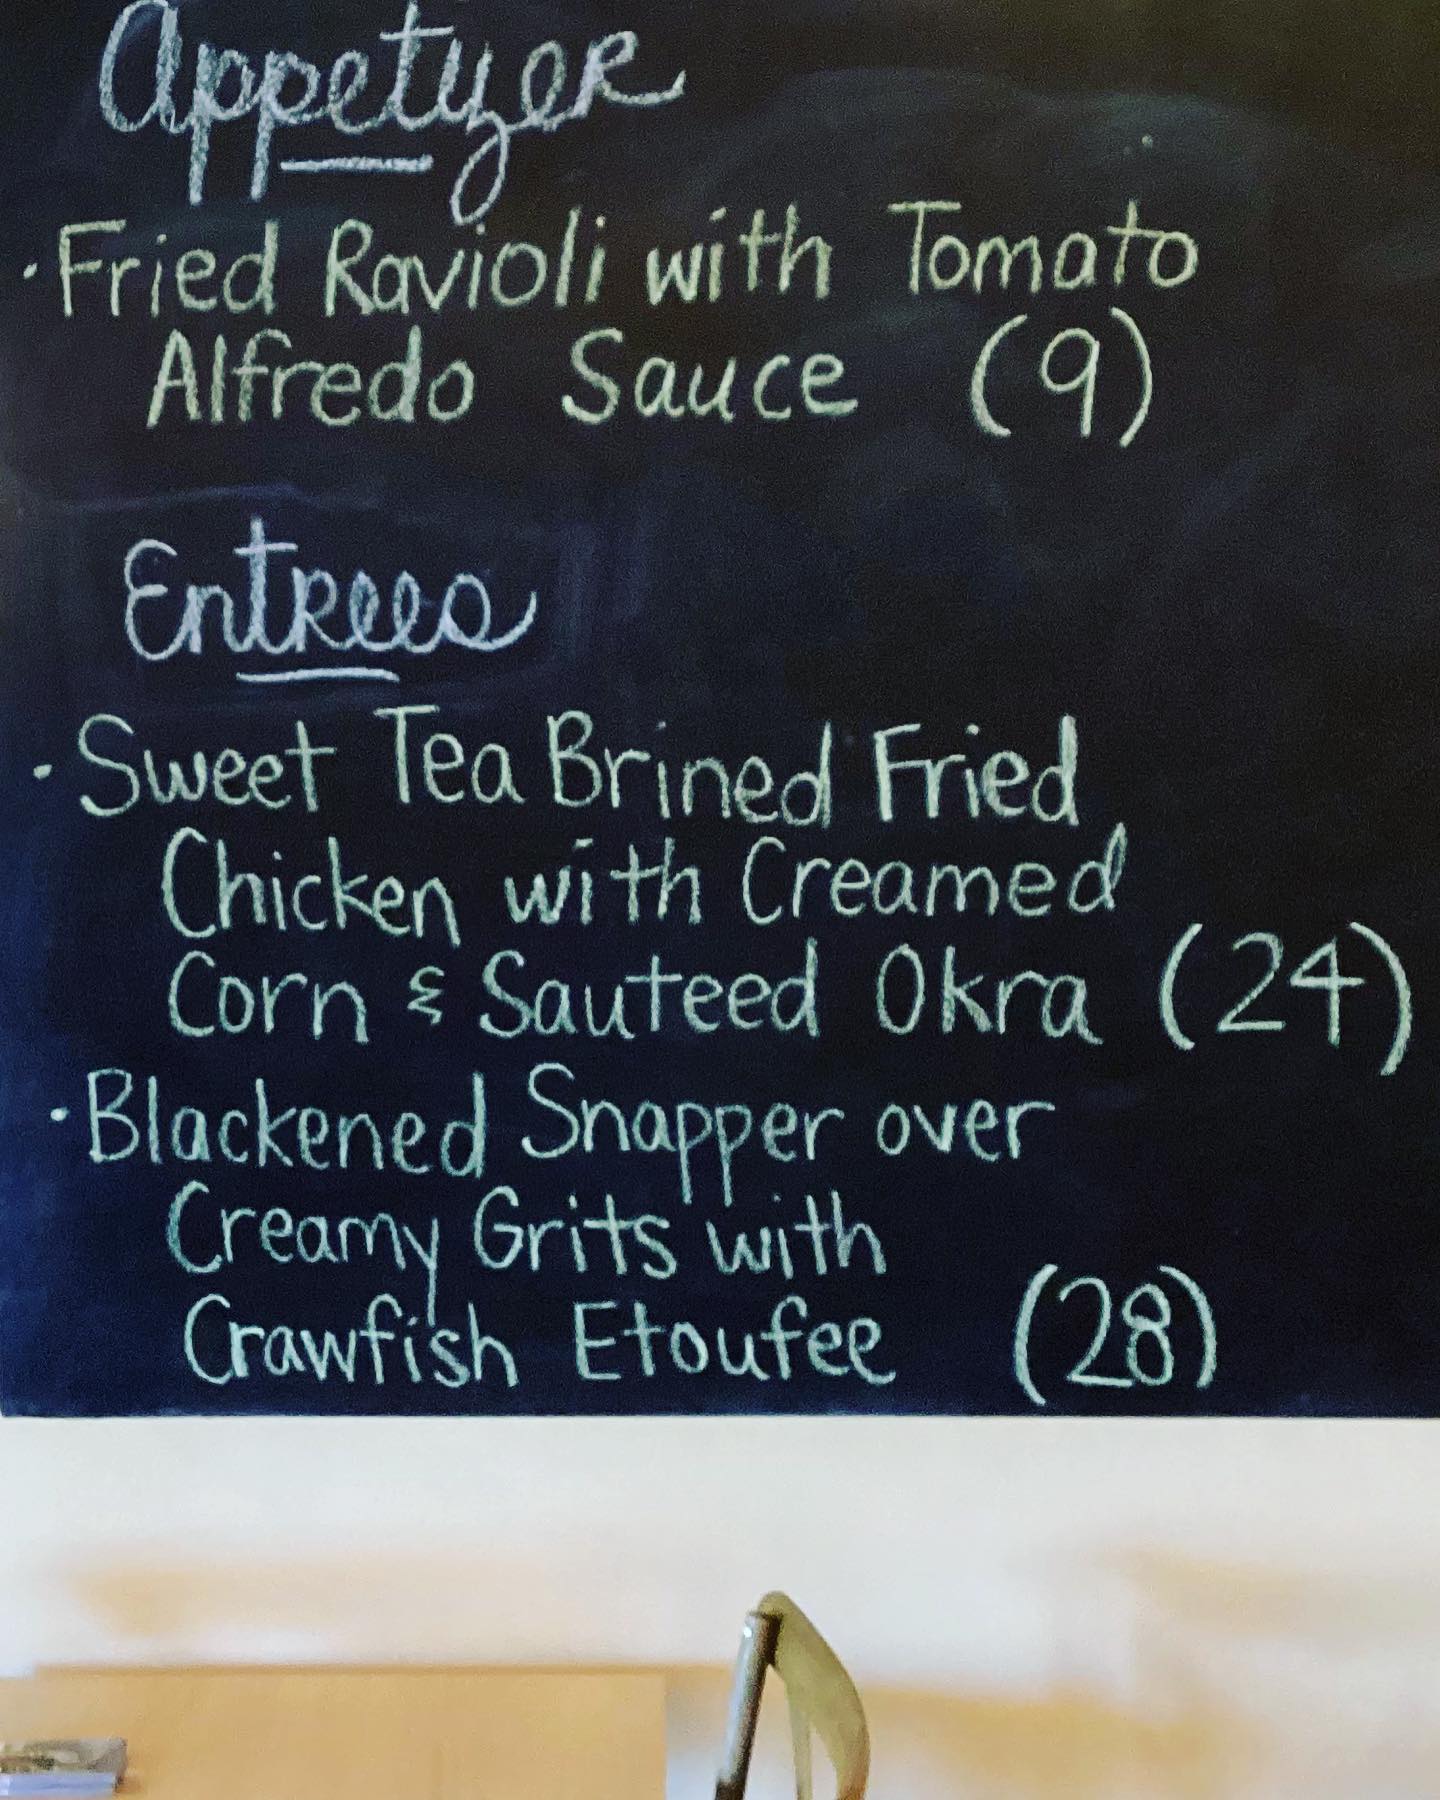 Appetizer
· Fried Ravioli with Tomato
Alfredo Sauce (9)
Entrees
· Sweet Tea Brined Fried
Chicken with Creamed
Corn & Sauteed Okra (24)
· Blackened Snapper over
Creamy Grits with
Crawfish Etoufee (28)